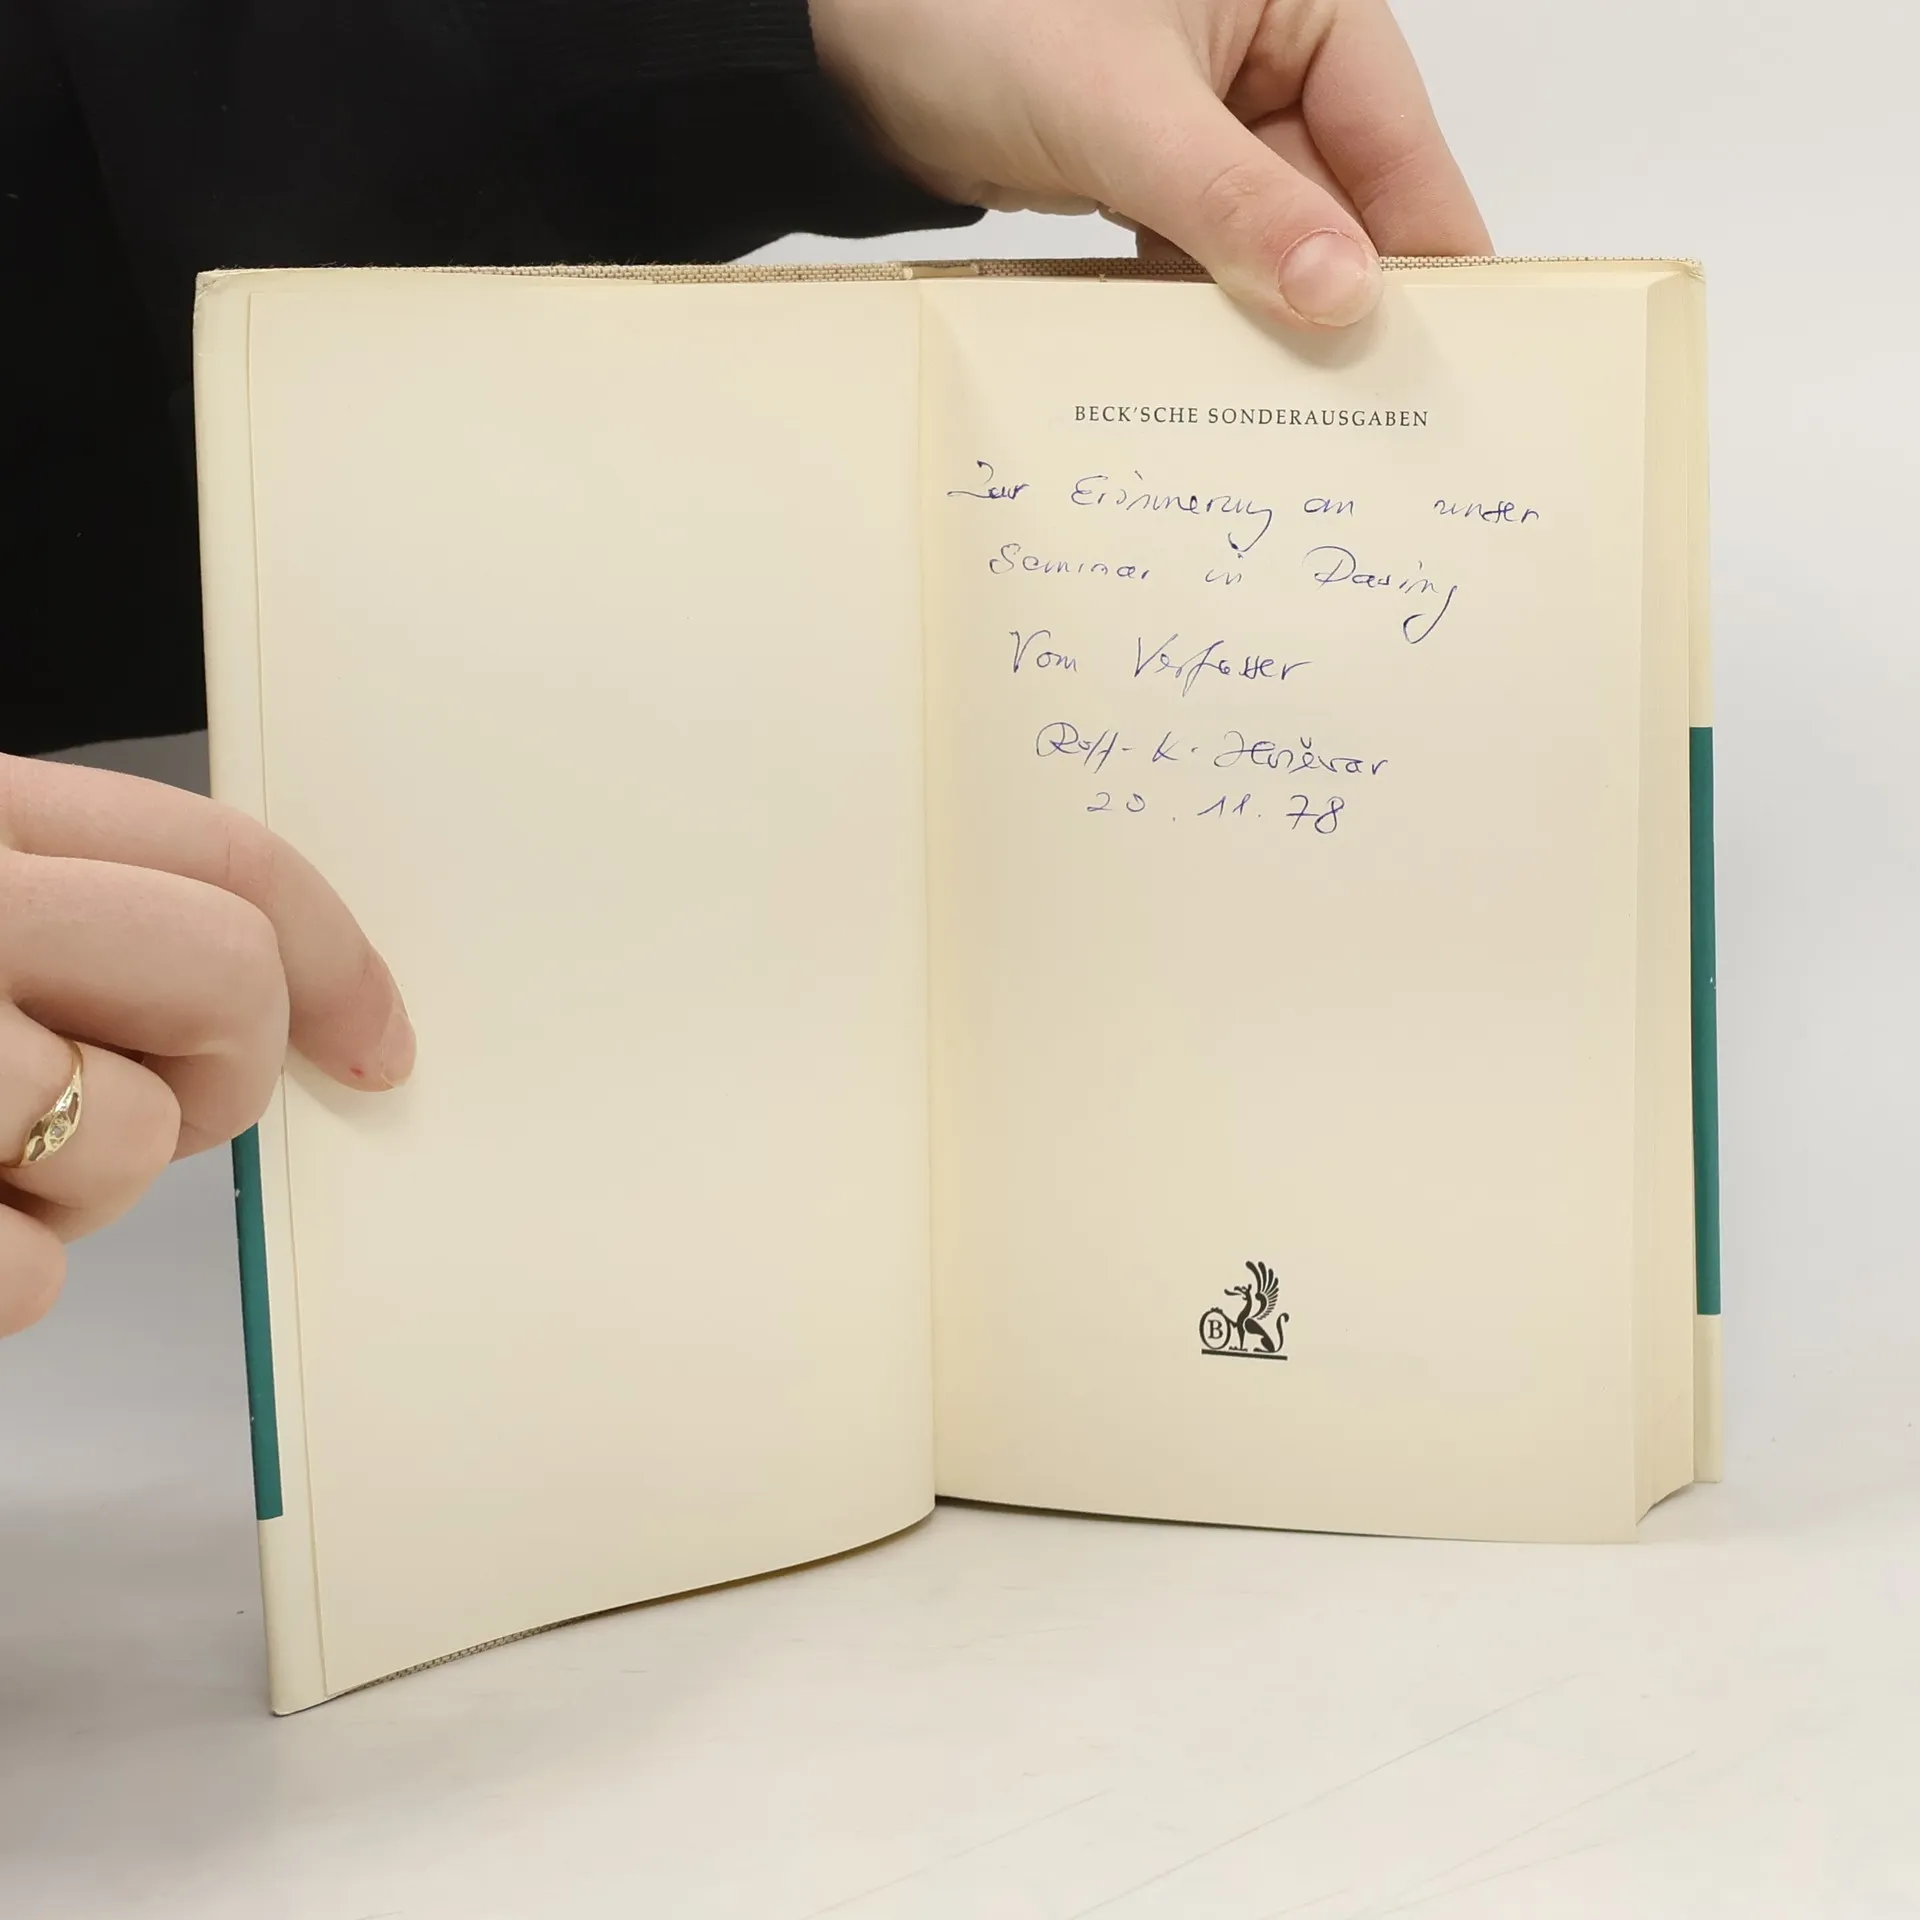 BECK'SCHE SONDERAUSGABEN
Zur Erinnerung an unser
Seminar in Dasing
Vom Verfasser
Rolf - K.
20. 11. 78
B